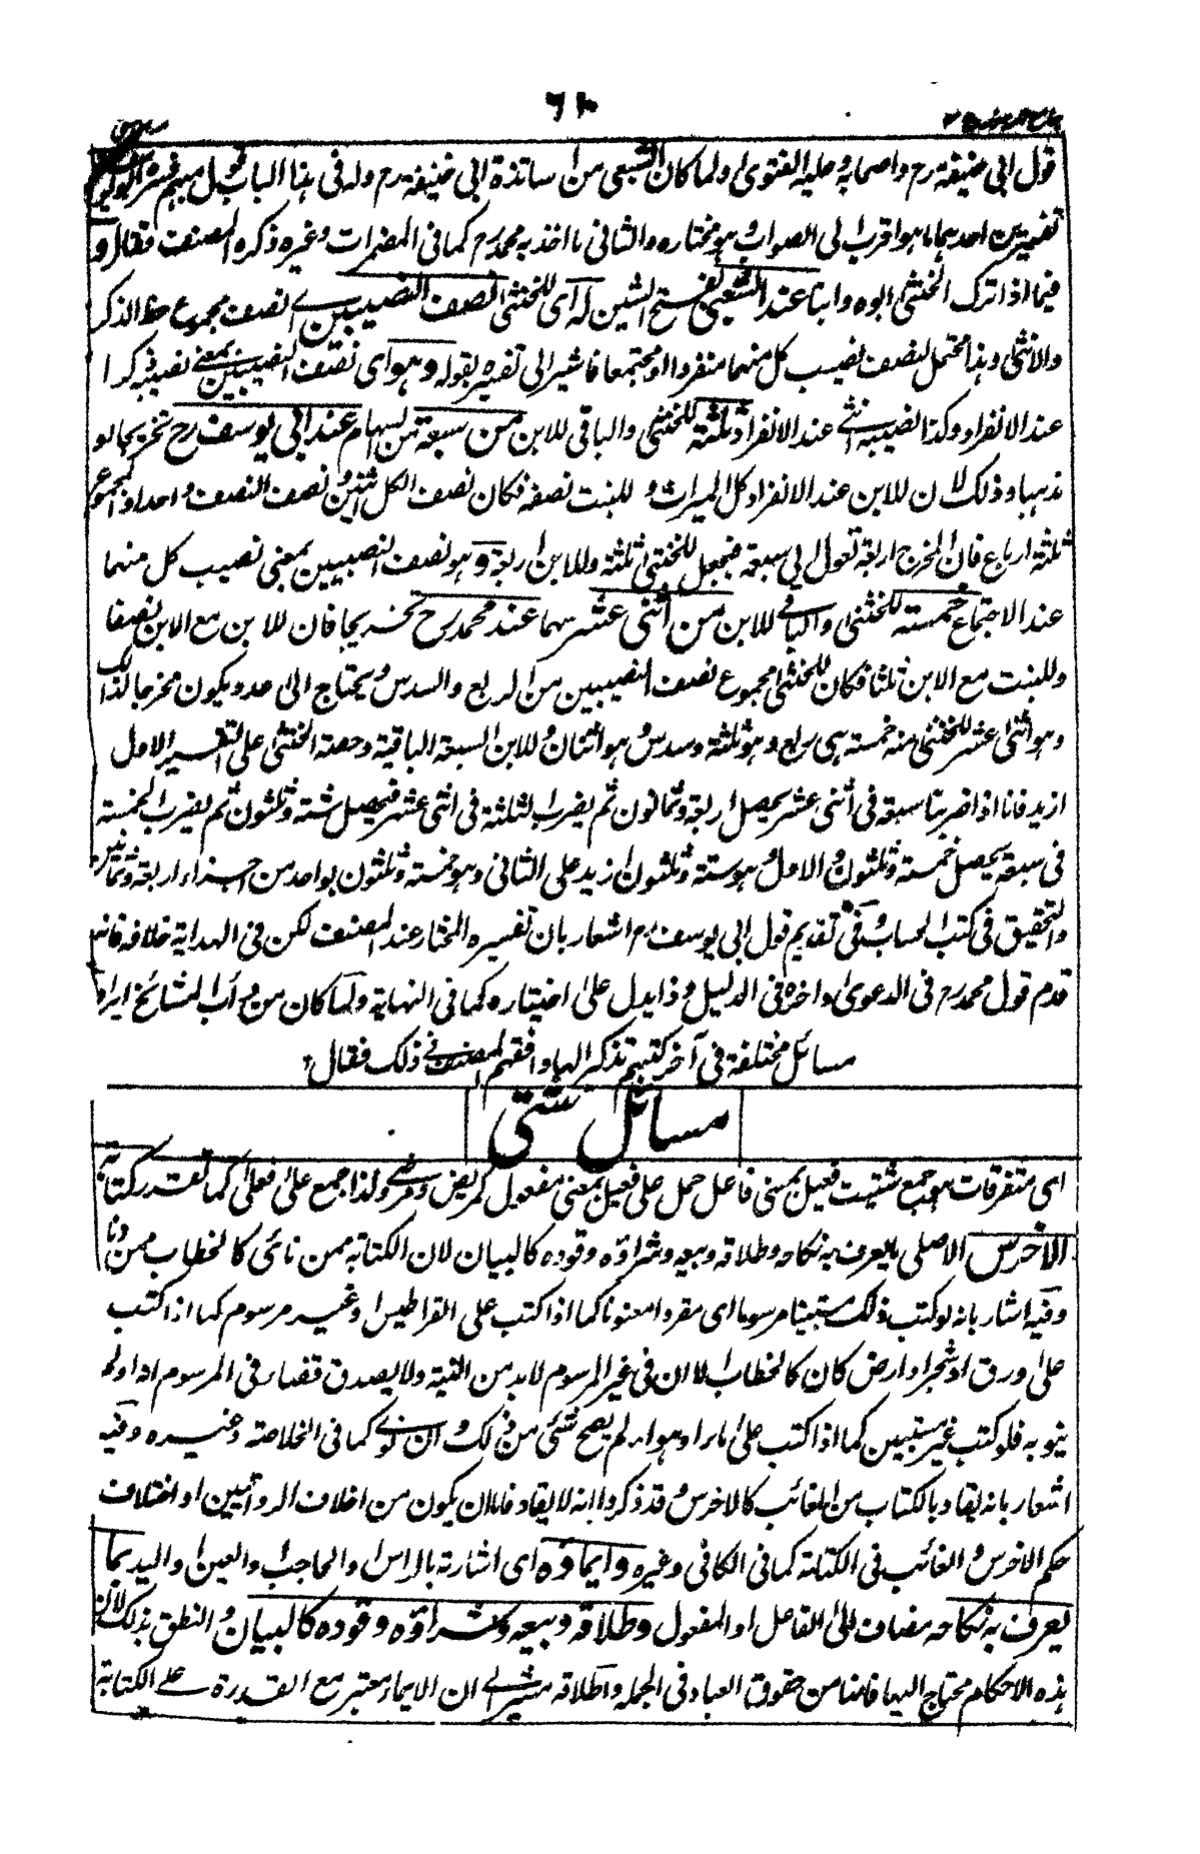 ٦٨٠
قول ابی حنیفة رح واصحابه وعلیه الفتوی ولما کان الشعبی من اساتذة ابی حنیفة رح وله فی هذا الباب قول مبهم فسره
تفسیرین احدهما ما هو اقرب الی الصواب وهو مختاره والثانی ما اخذ به محمد رح کما فی المضمرات وغیره ذکره المصنف فقال و
فیما اذا ترک الخنثی ابوه وابنا عند الشعبی بفتح الشین له ای للخنثی نصف النصیبین ای نصف مجموع حظ الذکر
والانثی وهذا محتمل لنصف نصیب کل منهما منفردا او مجتمعا فاشیر الی تفسیره بقوله وهو ای نصف النصیبین بمعنی نصیبه ذکرا
عند الانفراد وکذا نصیبه انثی عند الانفراد ثلثة للخنثی والباقی للابن من سبعة من السهام عند ابی یوسف رح تخریجا لو
مذهبا وذلک لان للابن عند الانفراد کل المیراث وللبنت نصفه فکان نصف الکل اثنین ونصف النصف واحدا فمجموعه
ثلثة ارباع فان المخرج اربعة تعول الی سبعة فیجعل للخنثی ثلثة وللابن اربعة وهو نصف النصیبین بمعنی نصیب کل منهما
عند الاجتماع خمسة للخنثی والباقی للابن من اثنی عشر سهما عند محمد رح تخریجا فان للابن مع الابن نصفا
وللبنت مع الابن ثلثا فکان للخنثی مجموع نصف النصیبین من الربع والسدس ویحتاج الی عدد یکون مخرجا لذلک
وهو اثنی عشر للخنثی منه خمسة هی ربع وهو ثلثة وسدس وهو اثنان وللابن السبعة الباقیة وحصة الخنثی علی التفسیر الاول
ازید فانا اذا ضربنا سبعة فی اثنی عشر یحصل اربعة وثمانون ثم یضرب الثلثة فی اثنی عشر فیحصل ستة وثلثون ثم یضرب الخمسة
فی سبعة یحصل خمسة وثلثون والاول وهو ستة وثلثون ازید علی الثانی وهو خمسة وثلثون بواحد من اجزاء اربعة وثمانین
والتحقیق فی کتب الحساب وفی تقدیم قول ابی یوسف رح اشعار بان تفسیره المختار عند المصنف لکن فی الهدایة خلافه فانه
قدم قول محمد رح فی الدعوی واخره فی الدلیل وذا یدل علی اختیاره کما فی النهایة ولما کان من دأب المشائخ ایراد
مسائل مختلفة فی آخر کتبهم تذکر الها وافقهم المصنف فی ذلک فقال
مسائل شتی
ای متفرقات جمع شتیت فعیل بمعنی فاعل حمل علی فعیل بمعنی مفعول کمریض ومرضی ولذا جمع علی فعلی کما تقدر کتابة
الاخرس الاصلی ما یعرف به نکاحه وطلاقه وبیعه وشراؤه وقوده کالبیان لان الکتابة ممن نأی کالخطاب ممن دنا
وفیه اشار بانه لو کتب ذلک مستبینا مرسوما ای مقرو امعنونا کما اذا کتب علی القراطیس او غیر مرسوم کما اذا کتب
علی ورق او شجر او ارض کان کالخطاب الا ان فی غیر المرسوم لابد من النیة ولا یصدق قضاء فی المرسوم انه لم
ینو به فلو کتب غیر مستبین کما اذا کتب علی ماء او هواء لم یصح شئ من ذلک وان نوی کما فی الخلاصة وغیره وفیه
اشعار بانه یقاد بالکتاب من الغائب کالاخرس وقد ذکروا انه لا یقاد فاما ان یکون من اختلاف الروایتین او اختلاف
حکم الاخرس والغائب فی الکتابة کما فی الکافی وغیره وایماؤه ای اشارته بالراس او الحاجب او العین او الید بما
یعرف به نکاحه مضاف الی الفاعل او المفعول وطلاقه وبیعه وشراؤه وقوده کالبیان والنطق بذلک لان
هذه الاحکام محتاج الیها فانها من حقوق العباد فی الجملة واطلاقه مشیر الی ان الایماء معتبر مع القدرة علی الکتابة